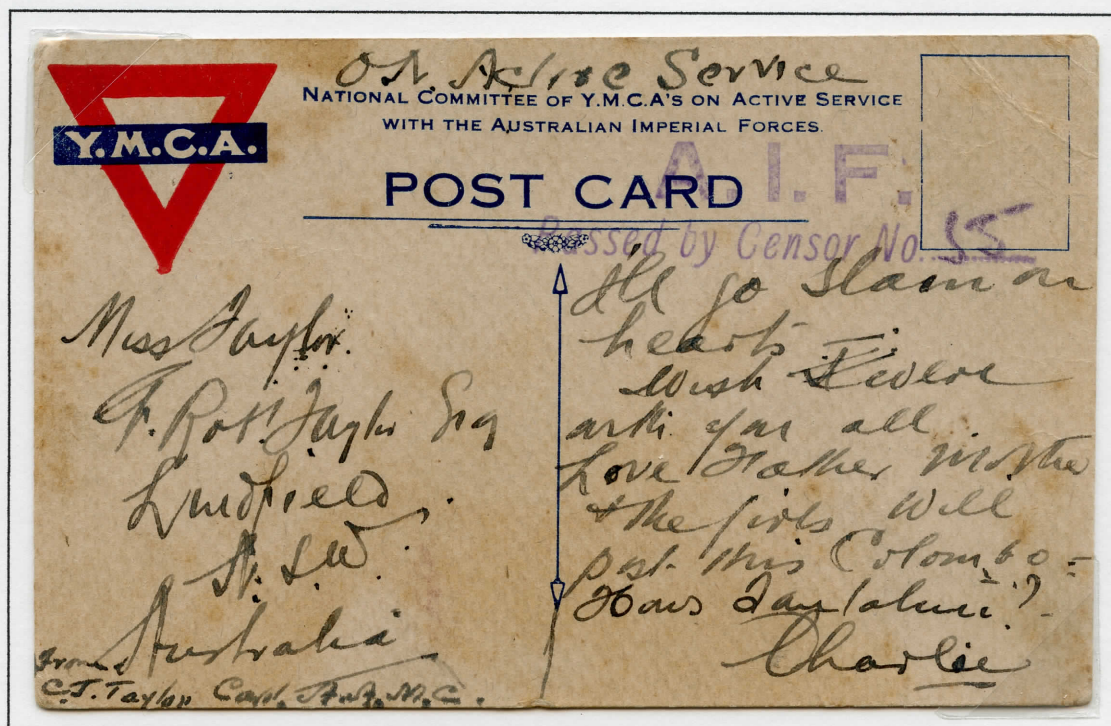 ON Active Service
NATIONAL COMMITTEE OF Y.M.C.A's ON ACTIVE SERVICE
WITH THE AUSTRALIAN IMPERIAL FORCES.
Y.M.C.A.
POST CARD
A.I.F.
Passed by Censor No. 55
Miss Taylor.
F. Robt. Taylor Esq
Lindfield
N.S.W.
Australia
From
C.J. Taylor Capt. A.A.M.C.
I'll go slam on
hearts -
Wish I were
with you all
Love Father Mother
& the girls Will
post this Colombo -
Hows
Charlie